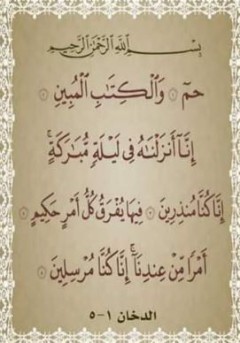 بِسْمِ اللَّهِ الرَّحْمَٰنِ الرَّحِيمِ
حمٓ ۝ وَٱلْكِتَٰبِ ٱلْمُبِينِ ۝
إِنَّآ أَنزَلْنَٰهُ فِى لَيْلَةٍ مُّبَٰرَكَةٍ ۚ
إِنَّا كُنَّا مُنذِرِينَ ۝ فِيهَا يُفْرَقُ كُلُّ أَمْرٍ حَكِيمٍ ۝
أَمْرًا مِّنْ عِندِنَآ ۚ إِنَّا كُنَّا مُرْسِلِينَ ۝
الدخان ١-٥